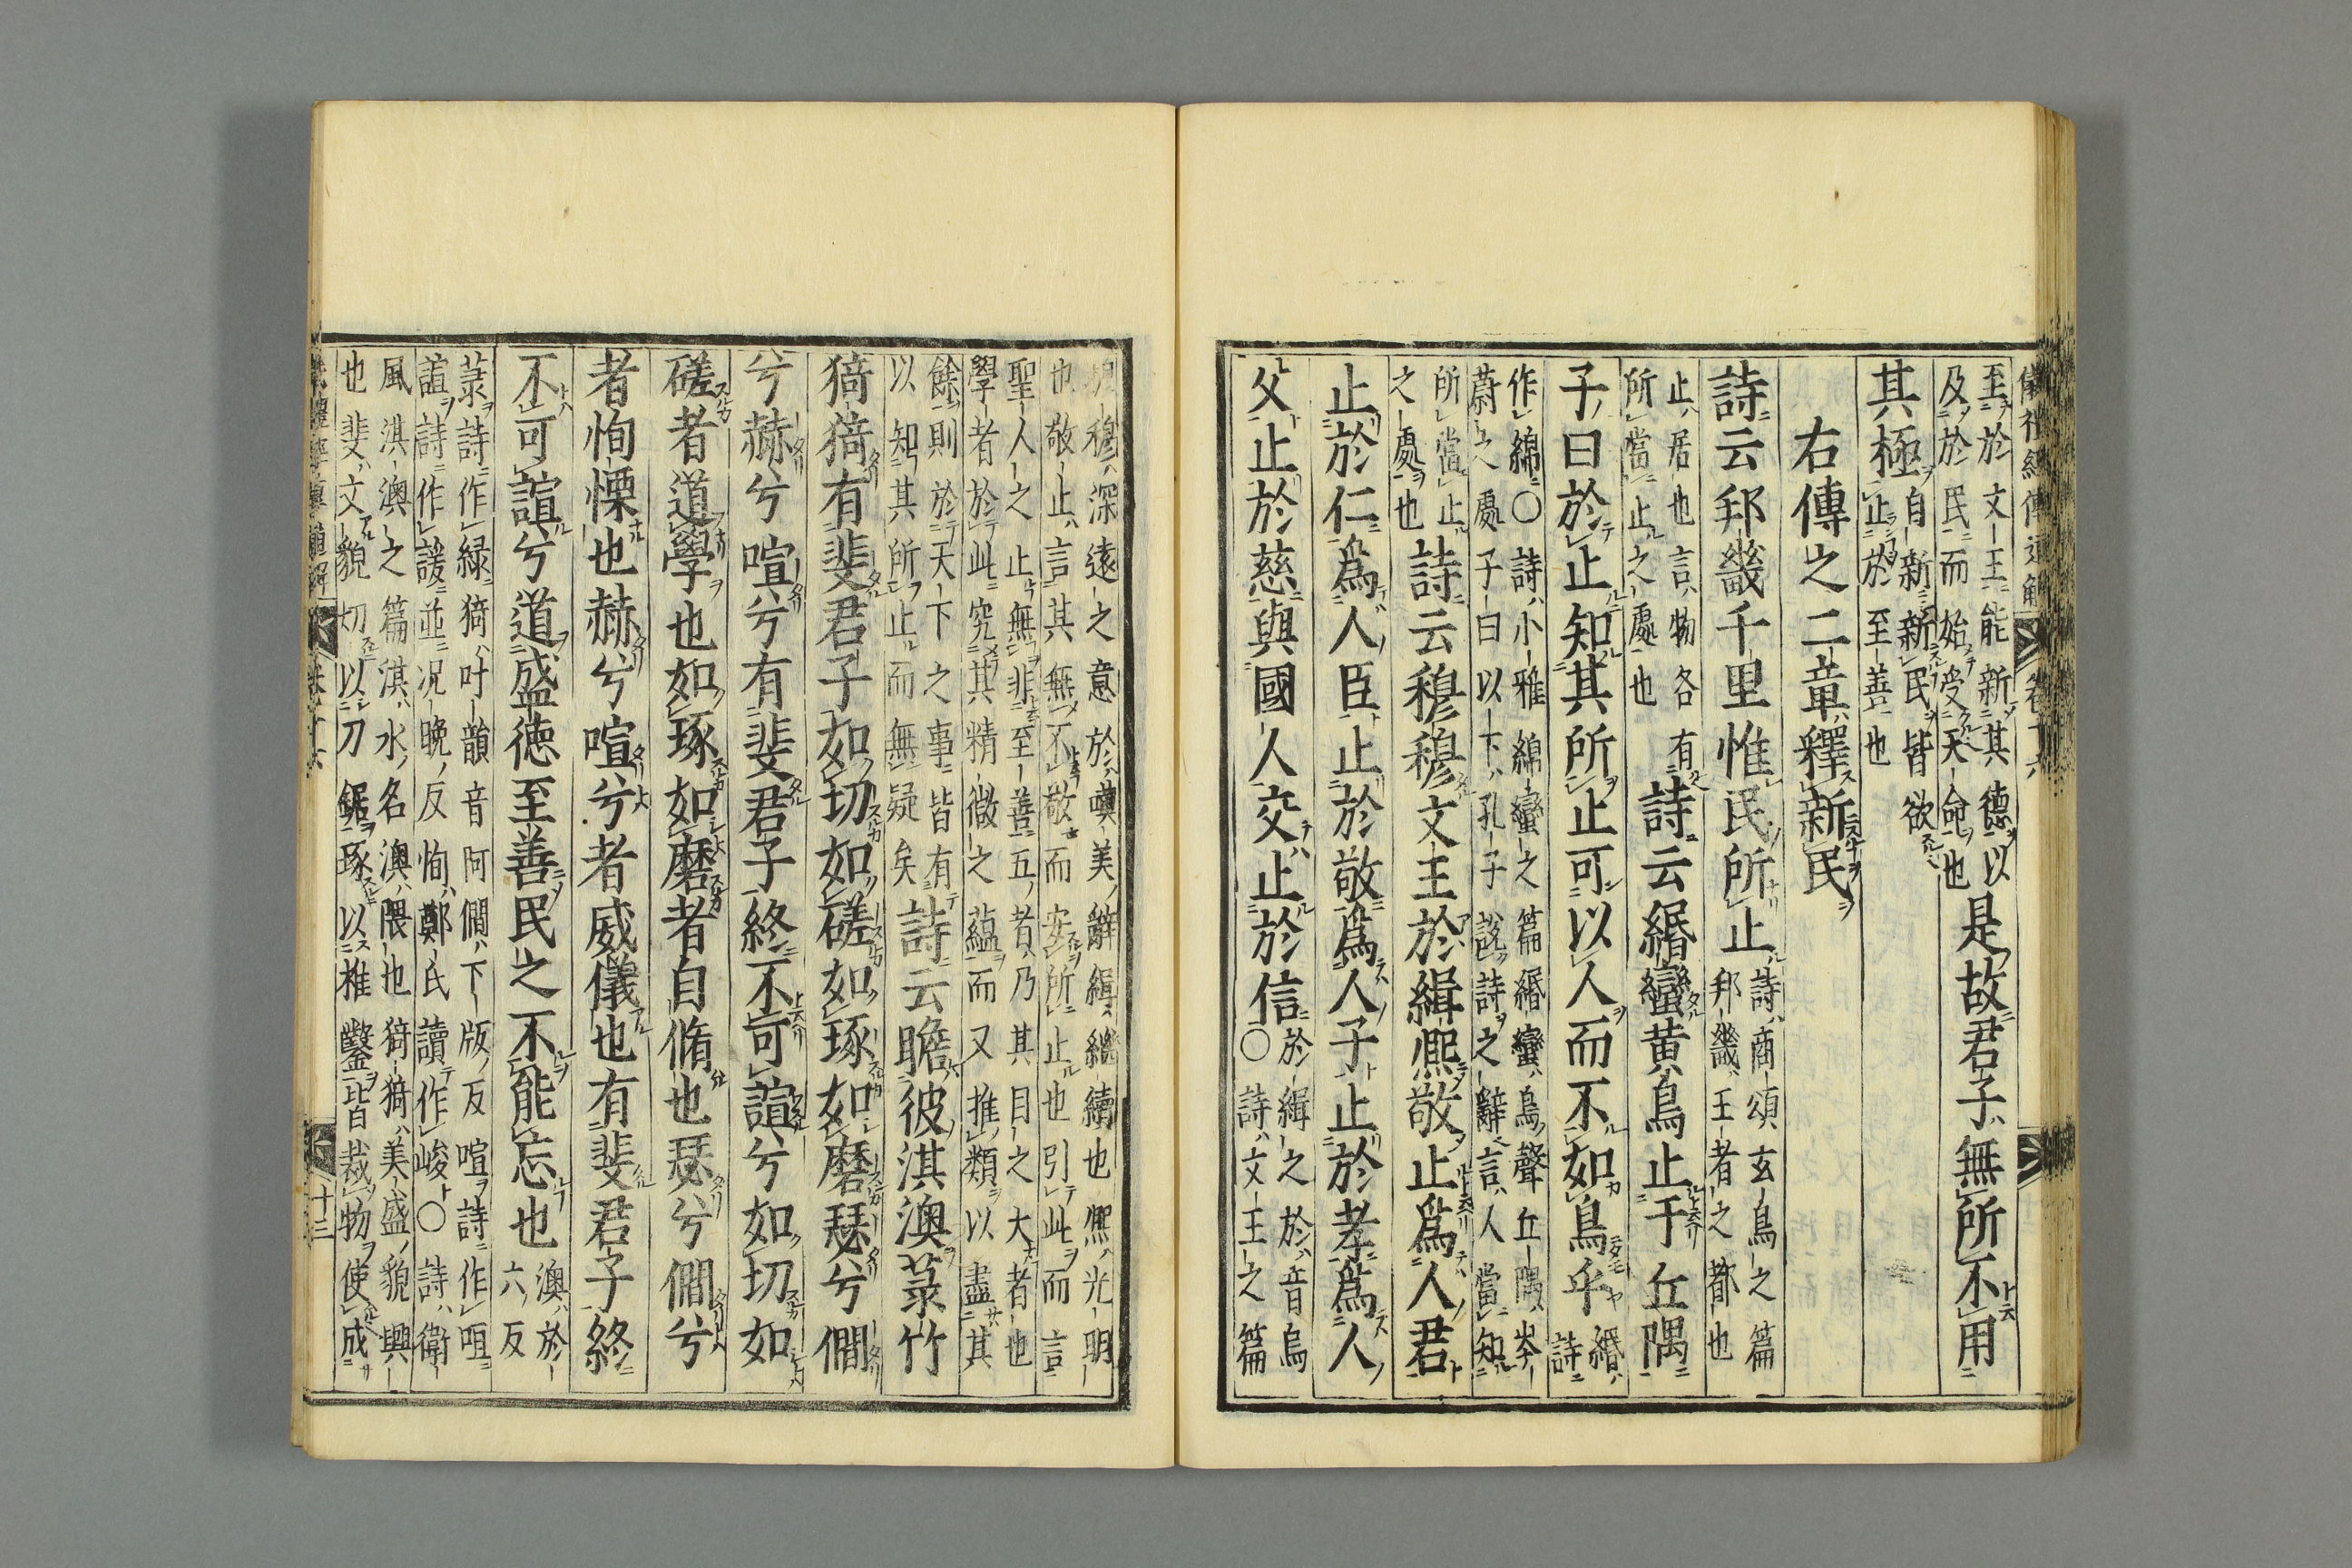 至於文王能新其德以
及於民而始受天命也
是故君子無所不用
其極
自新新民皆欲
止於至善也
右傳之二章釋新民
詩云邦畿千里惟民所止
詩商頌玄鳥之篇
邦畿王者之都也
止居也言物各有
所當止之處也
詩云緡蠻黄鳥止于丘隅
子曰於止知其所止可以人而不如鳥乎
緡詩
作綿○詩小雅綿蠻之篇緡蠻鳥聲丘隅岑
蔚之處子曰以下孔子説詩之辭言人當知
所當止
之處也
詩云穆穆文王於緝熈敬止爲人君
止於仁爲人臣止於敬爲人子止於孝爲人
父止於慈與國人交止於信
於緝之於音烏
○詩文王之篇
穆深遠之意於嘆美辭緝繼續也熈光明
也敬止言其無不敬而安所止也引此而言
聖人之止無非至善五者乃其目之大者也
學者於此究其精微之蘊而又推類以盡其
餘則於天下之事皆有
以知其所止而無疑矣
詩云瞻彼淇澳菉竹
猗猗有斐君子如切如磋如琢如磨瑟兮僩
兮赫兮喧兮有斐君子終不可諠兮如切如
磋者道學也如琢如磨者自脩也瑟兮僩兮
者恂慄也赫兮喧兮者威儀也有斐君子終
不可諠兮道盛德至善民之不能忘也
澳於
六反
菉詩作緑猗叶韻音阿僩下版反喧詩作咺
諠詩作諼並况晩反恂鄭氏讀作峻○詩衛
風淇澳之篇淇水名澳隈也猗猗美盛貌興
也斐文貌切以刀鋸琢以椎鑿皆裁物使成
十三